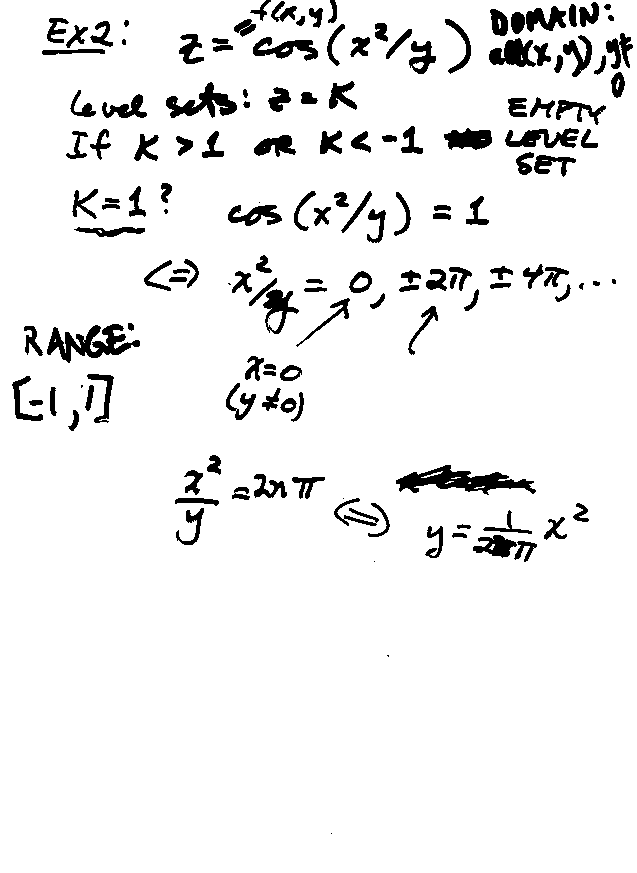 Ex2: z = f(x,y) = cos(x²/y) DOMAIN: all (x,y), y≠0
Level sets: z = K
If K > 1 or K < -1 EMPTY LEVEL SET
K=1? cos(x²/y) = 1
⇔ x²/y = 0, ±2π, ±4π,...
RANGE:
[-1,1]
x=0
(y≠0)
x²/y = 2nπ ⇔ y = 1/(2nπ) x²